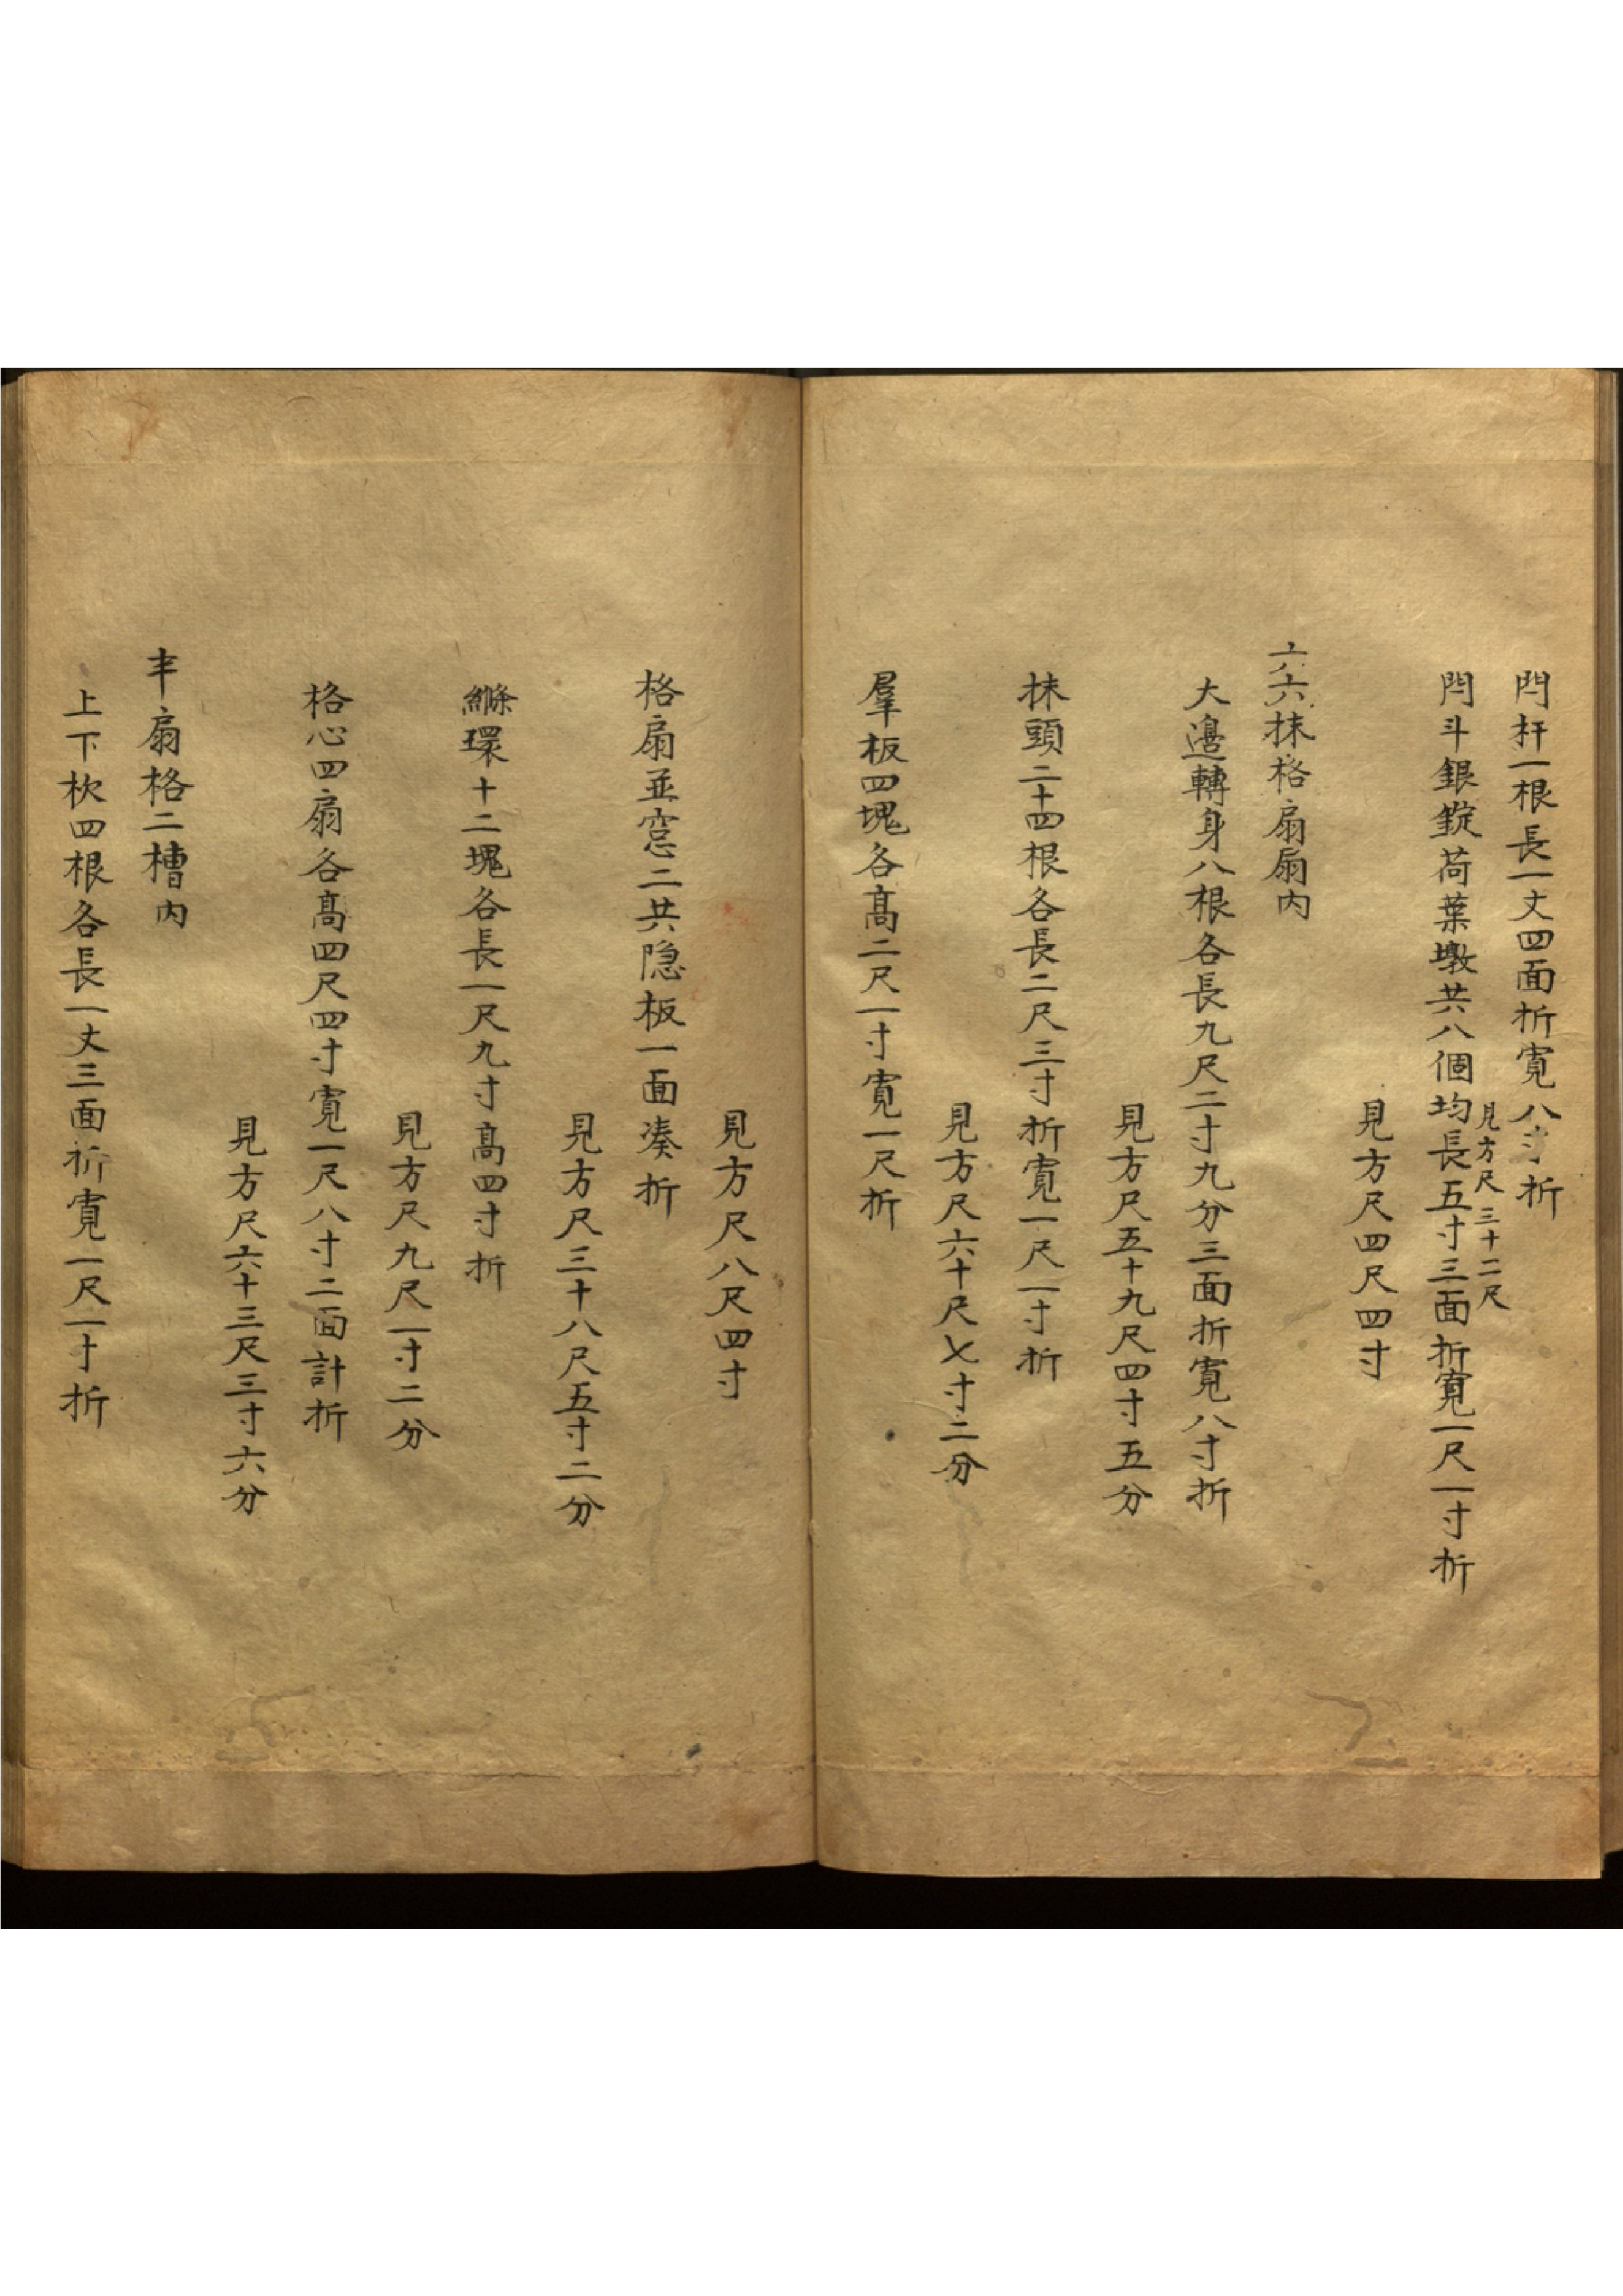 閂杆一根長一丈四面折寬八寸折
見方尺三十二尺
閂斗銀錠荷葉墩共八個均長五寸三面折寬一尺一寸折
見方尺四尺四寸
六抹格扇扇內
大邊轉身八根各長九尺二寸九分三面折寬八寸折
見方尺五十九尺四寸五分
抹頭二十四根各長二尺三寸折寬一尺一寸折
見方尺六十尺七寸二分
羣板四塊各髙二尺一寸寬一尺折
見方尺八尺四寸
格扇並窓二共隐板一面凑折
見方尺三十八尺五寸二分
縧環十二塊各長一尺九寸髙四寸折
見方尺九尺一寸二分
格心四扇各髙四尺四寸寬一尺八寸二面計折
見方尺六十三尺三寸六分
扇格二槽內
上下杴四根各長一丈三面折寬一尺一寸折